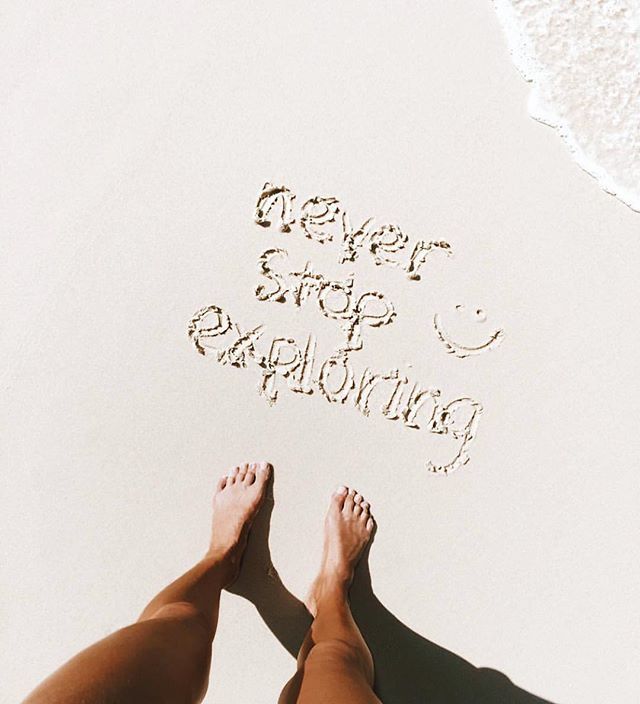 never
stop
exploring